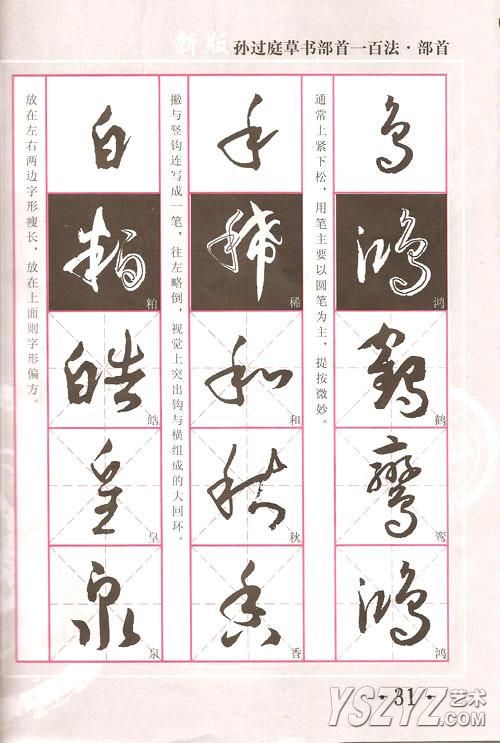 新版 孙过庭草书部首一百法·部首
鸟
鸿
鹤
鸾
鸿
通常上紧下松，用笔主要以圆笔为主，提按微妙。
禾
稀
和
秋
香
撇与竖钩连写成一笔，往左略倒，视觉上突出钩与横组成的大回环。
白
粕
皓
皇
泉
放在左右两边字形瘦长，放在上面则字形偏方。
·31·
YSZYZ艺术.COM